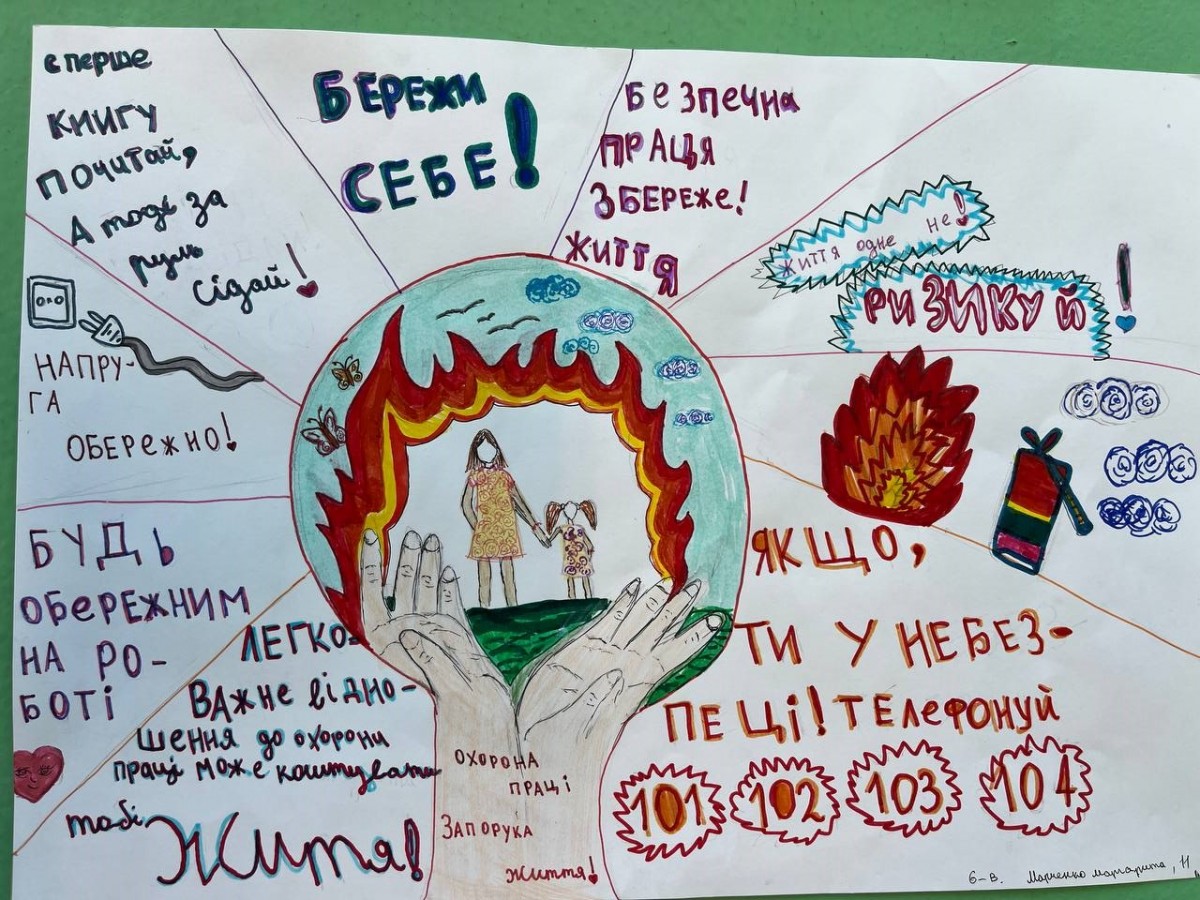 Сперше
КНИГУ
ПОЧИТАЙ,
А тоді за
руль
Сідай!
БЕРЕЖИ
СЕБЕ!
БеЗПЕЧНА
ПРАЦЯ
ЗБЕРЕЖЕ!
ЖИТТЯ
ЖИТТЯ ОДНЕ НЕ!
РИЗИКУЙ!
НАПРУ-
ГА
ОБЕРЕЖНО!
БУДЬ
ОБЕРЕЖНИМ
НА РО-
БОТІ
ЛЕГКО-
ВАЖНЕ відно-
шення до охорони
праці може коштувати
тобі
Життя!
ОХОРОНА
ПРАЦІ
ЗАПОРУКА
життя!
ЯКЩО,
ТИ У НЕБЕЗ-
ПЕЦІ! ТЕЛЕФОНУЙ
101 102 103 104
6-в. Марченко Маргарита, 11